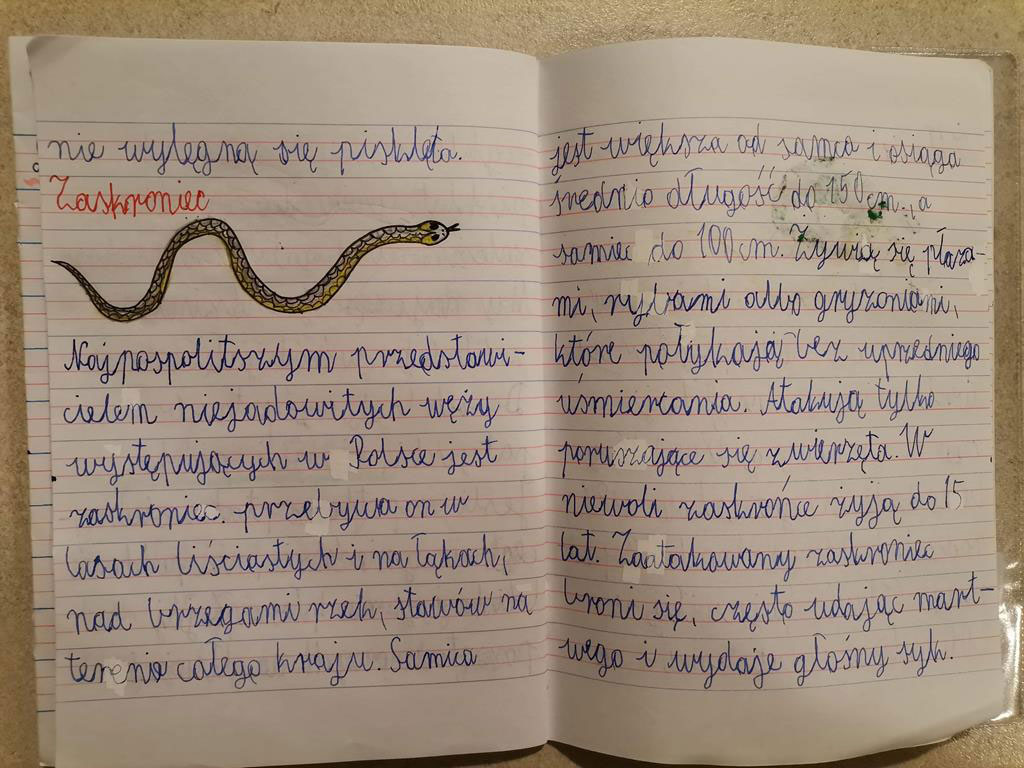 nie wylęgną się pisklęta.
Zaskroniec
Najpospolitszym przedstawi-
cielem niejadowitych węży
występujących w Polsce jest
zaskroniec. przebywa on w
lasach liściastych i na łąkach,
nad brzegami rzek, stawów na
terenie całego kraju. Samica
jest większa od samca i osiąga
średnio długość do 150 cm., a
samiec do 100 cm. Żywią się płaza-
mi, rybami albo gryzoniami,
które połykają bez uprzedniego
uśmiercania. Atakują tylko
poruszające się zwierzęta. W
niewoli zaskrońce żyją do 15
lat. Zaatakowany zaskroniec
broni się, często udając mart-
wego i wydaje głośny syk.